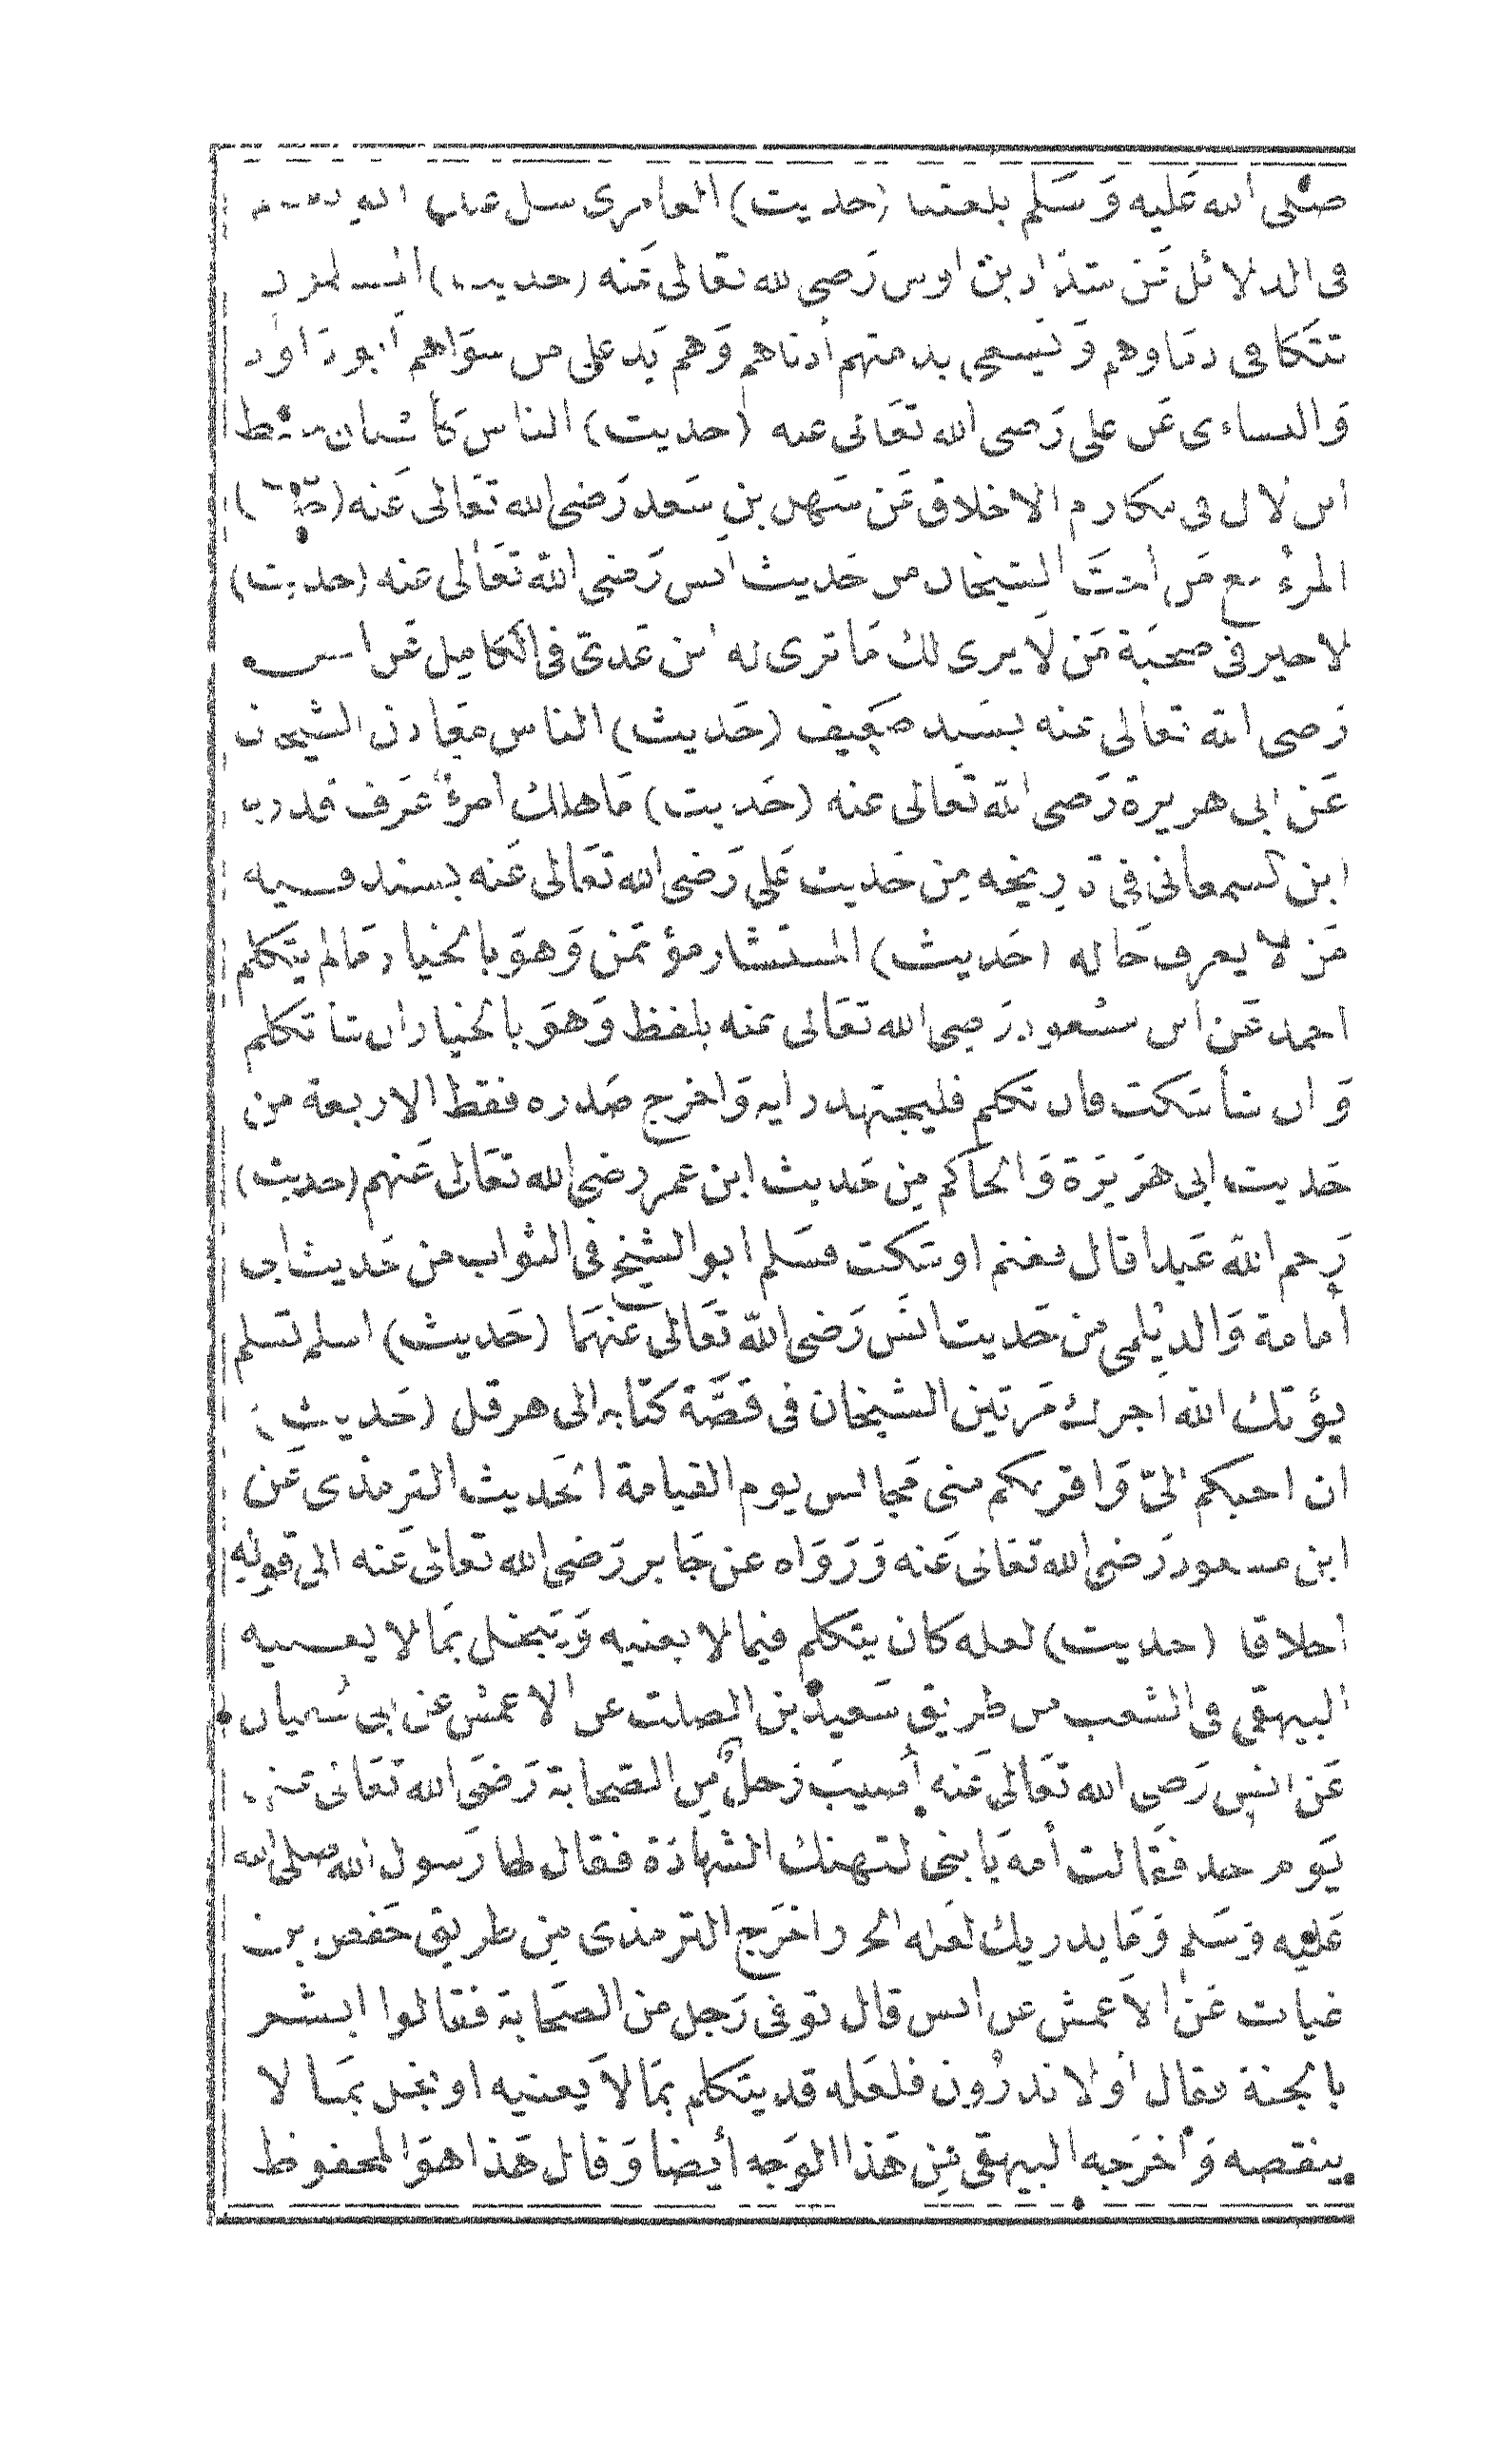 صلى الله عليه وسلم بلغتنا (حديث) العامرى
فى الدلائل عن شداد بن اوس رضى الله تعالى عنه (حديث) المسلمون
تتكافى دماوهم وَيسعى بذمتهم أدناهم وَهم يَد على من سوَاهم ابو دَاود
وَالنساءى عَن على رَضى الله تعَالى عنه (حديث) الناس كأسنان مشط
ابن لال فى مكارم الاخلاق عَن سَهل بن سَعد رَضى الله تعَالى عَنه (حديث)
المرءُ مع مَن أحبَّ الشيخان من حَديث انس رَضى الله تعَالى عنه (حديث)
لاخير فى صحبَة مَن لَا يرى لك مَا ترى له ابن عَدىّ فى الكامِل عَن انس
رَضى الله تعَالى عنه بسَند ضعِيف (حَديث) الناس معَادن الشيخان
عَن ابى هريرة رَضى الله تعَالى عنه (حَديث) مَا هلك أمرؤٌ عَرف قدره
ابن السمعانى فى تاريخه مِن حَديث عَلى رَضى الله تعَالى عَنه بسند فيه
مَن لا يعرف حَاله (حَديث) المستشار مؤتمن وَهوَ بالخيار مَالم يتكلم
احمد عَن ابن مسعود رَضى الله تعَالى عنه بلفظ وَهوَ بالخيار ان شأ تكلم
وَان شأ سَكت فان تكلم فليجتهد رايه وَاخرج صَدره فقط الاربعة من
حَديث ابى هرَيرَة وَالحاكم مِن حَديث ابن عمر رضى الله تعَالى عَنهم (حديث)
رَحم الله عَبدا قال فغنم او سَكت فسَلم ابو الشيخ فى الثواب من حَديث ابى
أمامة وَالديْلمى من حَديث انَس رَضى الله تعَالى عَنهمَا (حَديث) اسلم تسلم
يؤتك الله اجرك مَرتين الشيخان فى قصَّة كتَابه الى هرقل (حَديث)
ان احبكم الىّ وَاقربكم منى مَجالس يوم القيامة الحَديث الترمذى عَن
ابن مسعود رَضى الله تعَالى عَنه وَرَوَاه عن جَابر رَضى الله تعالى عَنه الى قوله
اخلاقا (حديث) لعله كان يتكلم فيما لا يعنيه وَيبخل بمَا لا يعنيه
البيهقى فى الشعب من طريق سَعيد بن الصلت عن الاعمش عن ابى سُفيان
عَن انس رَضى الله تعَالى عَنه أصيبَ رَجلٌ مِن الصحابة رَضىَ الله تعَالى عنهم
يَوم احد فقالت أمه يَا بنى لتهنك الشهادَة فقال لها رَسول الله صلى الله
عَليه وَسَلم وَمَا يدريك لعَله الخ واخرَج الترمذى مِن طريق حَفص بن
غياث عَن الاَعمش عن انس قال توفى رَجل من الصحَابة فقالوا ابشر
بالجنة فقال أوَلا تدرُون فلعَله قد يتَكلم بمَا لاَ يَعنيه او بخل بمَا لا
ينقصه وَأخرَجه البيهقى مِن هَذا الوَجه أيضا وَقال هَذا هوَ المحفوظ